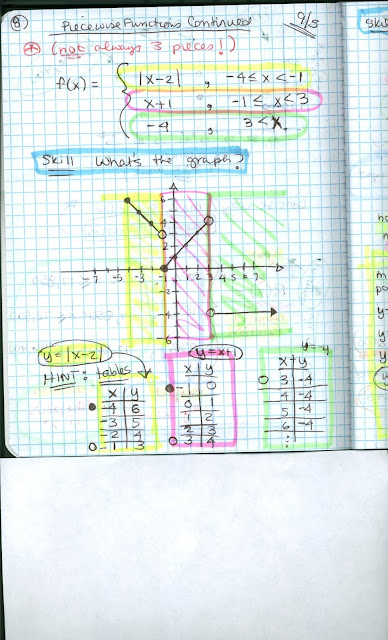 8 Piecewise Functions Continued 9/5
* (not always 3 pieces!)
f(x) = { |x-2| , -4≤x<-1
x+1 , -1≤x<3
-4 , 3<x.
Skill What's the graph?
6
4
2
-7 -5 -3 -1 1 2 3 4 5 6 7
-2
-4
-6
y=|x-2|
HINT: tables
x y
-4 6
-3 5
-2 4
-1 3
y=x+1
x y
-1 0
0 1
1 2
2 3
3 4
y=-4
x y
3 -4
4 -4
5 -4
6 -4
⋮
Skil